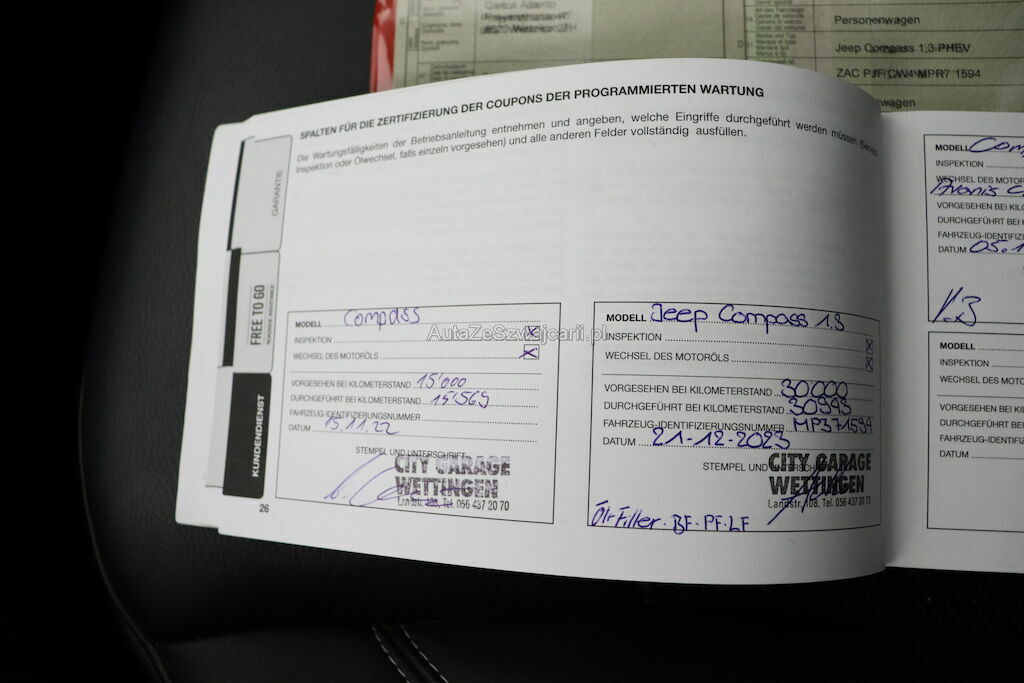 Personenwagen
Jeep Compass 1.3 PHEV
ZAC PJFCW4 MPR7 1594
wagen
SPALTEN FÜR DIE ZERTIFIZIERUNG DER COUPONS DER PROGRAMMIERTEN WARTUNG
Die Wartungsfälligkeiten der Betriebsanleitung entnehmen und angeben, welche Eingriffe durchgeführt werden müssen (Service-
Inspektion oder Ölwechsel, falls einzeln vorgesehen) und alle anderen Felder vollständig ausfüllen.
GARANTIE
FREE TO GO
KUNDENDIENST
MODELL Compass
INSPEKTION
WECHSEL DES MOTORÖLS
VORGESEHEN BEI KILOMETERSTAND 15'000
DURCHGEFÜHRT BEI KILOMETERSTAND 15'569
FAHRZEUG-IDENTIFIZIERUNGSNUMMER
DATUM 15.11.22
STEMPEL UND UNTERSCHRIFT
CITY GARAGE
WETTINGEN
Landstr. 108, Tel. 056 437 20 70
26
MODELL Jeep Compass 1.3
INSPEKTION
WECHSEL DES MOTORÖLS
VORGESEHEN BEI KILOMETERSTAND 30000
DURCHGEFÜHRT BEI KILOMETERSTAND 30993
FAHRZEUG-IDENTIFIZIERUNGSNUMMER MP371594
DATUM 21-12-2023
STEMPEL UND UNTERSCHRIFT
CITY GARAGE
WETTINGEN
Landstr. 108, Tel. 056 437 20 70
BF-PF-LF
MODELL Comp
INSPEKTION
WECHSEL DES MOTOR
VORGESEHEN BEI KILO
DURCHGEFÜHRT BEI K
FAHRZEUG-IDENTIFIZI
DATUM 05.1
MODELL
INSPEKTION
WECHSEL DES MOTO
VORGESEHEN BEI KILO
DURCHGEFÜHRT BEI
FAHRZEUG-IDENTIFIZ
DATUM
AutaZeSzwajcarii.pl